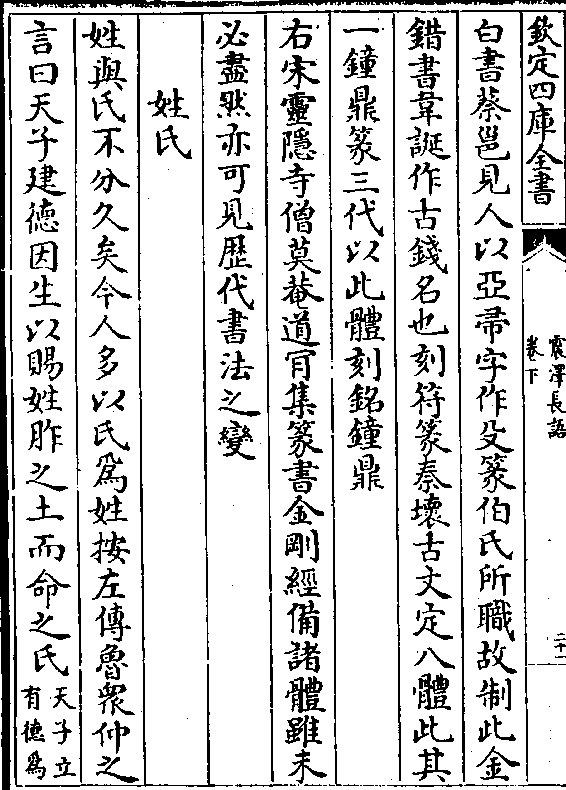 欽定四庫全書
震澤長語
卷下
二十一
白書蔡邕見人以亞帚字作殳篆伯氏所職故制此金
錯書韋誕作古錢名也刻符篆秦壞古文定八體此其
一鐘鼎篆三代以此體刻銘鐘鼎
右宋靈隱寺僧莫菴道肎集篆書金剛經備諸體雖未
必盡然亦可見歴代書法之變
姓氏
姓與氏不分久矣今人多以氏為姓按左傳魯眾仲之
言曰天子建德因生以賜姓胙之土而命之氏天子立
有德為